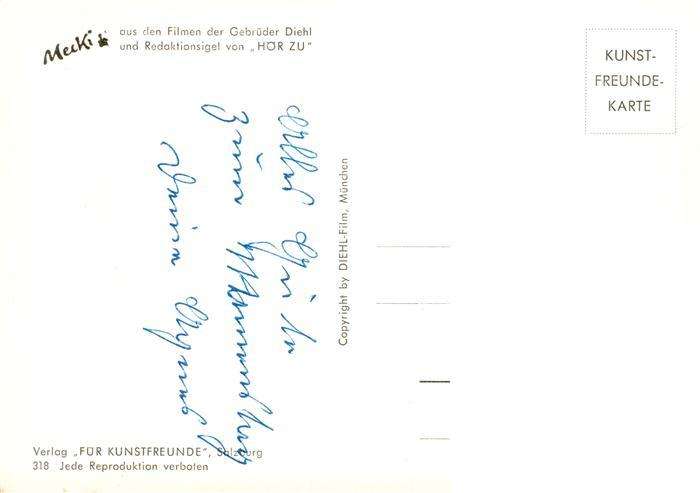 Mecki
aus den Filmen der Gebrüder Diehl
und Redaktionsigel von „HÖR ZU"
KUNST-
FREUNDE-
KARTE
Alles Gute
zum
Copyright by DIEHL-Film, München
Verlag „FÜR KUNSTFREUNDE", Salzburg
318 Jede Reproduktion verboten